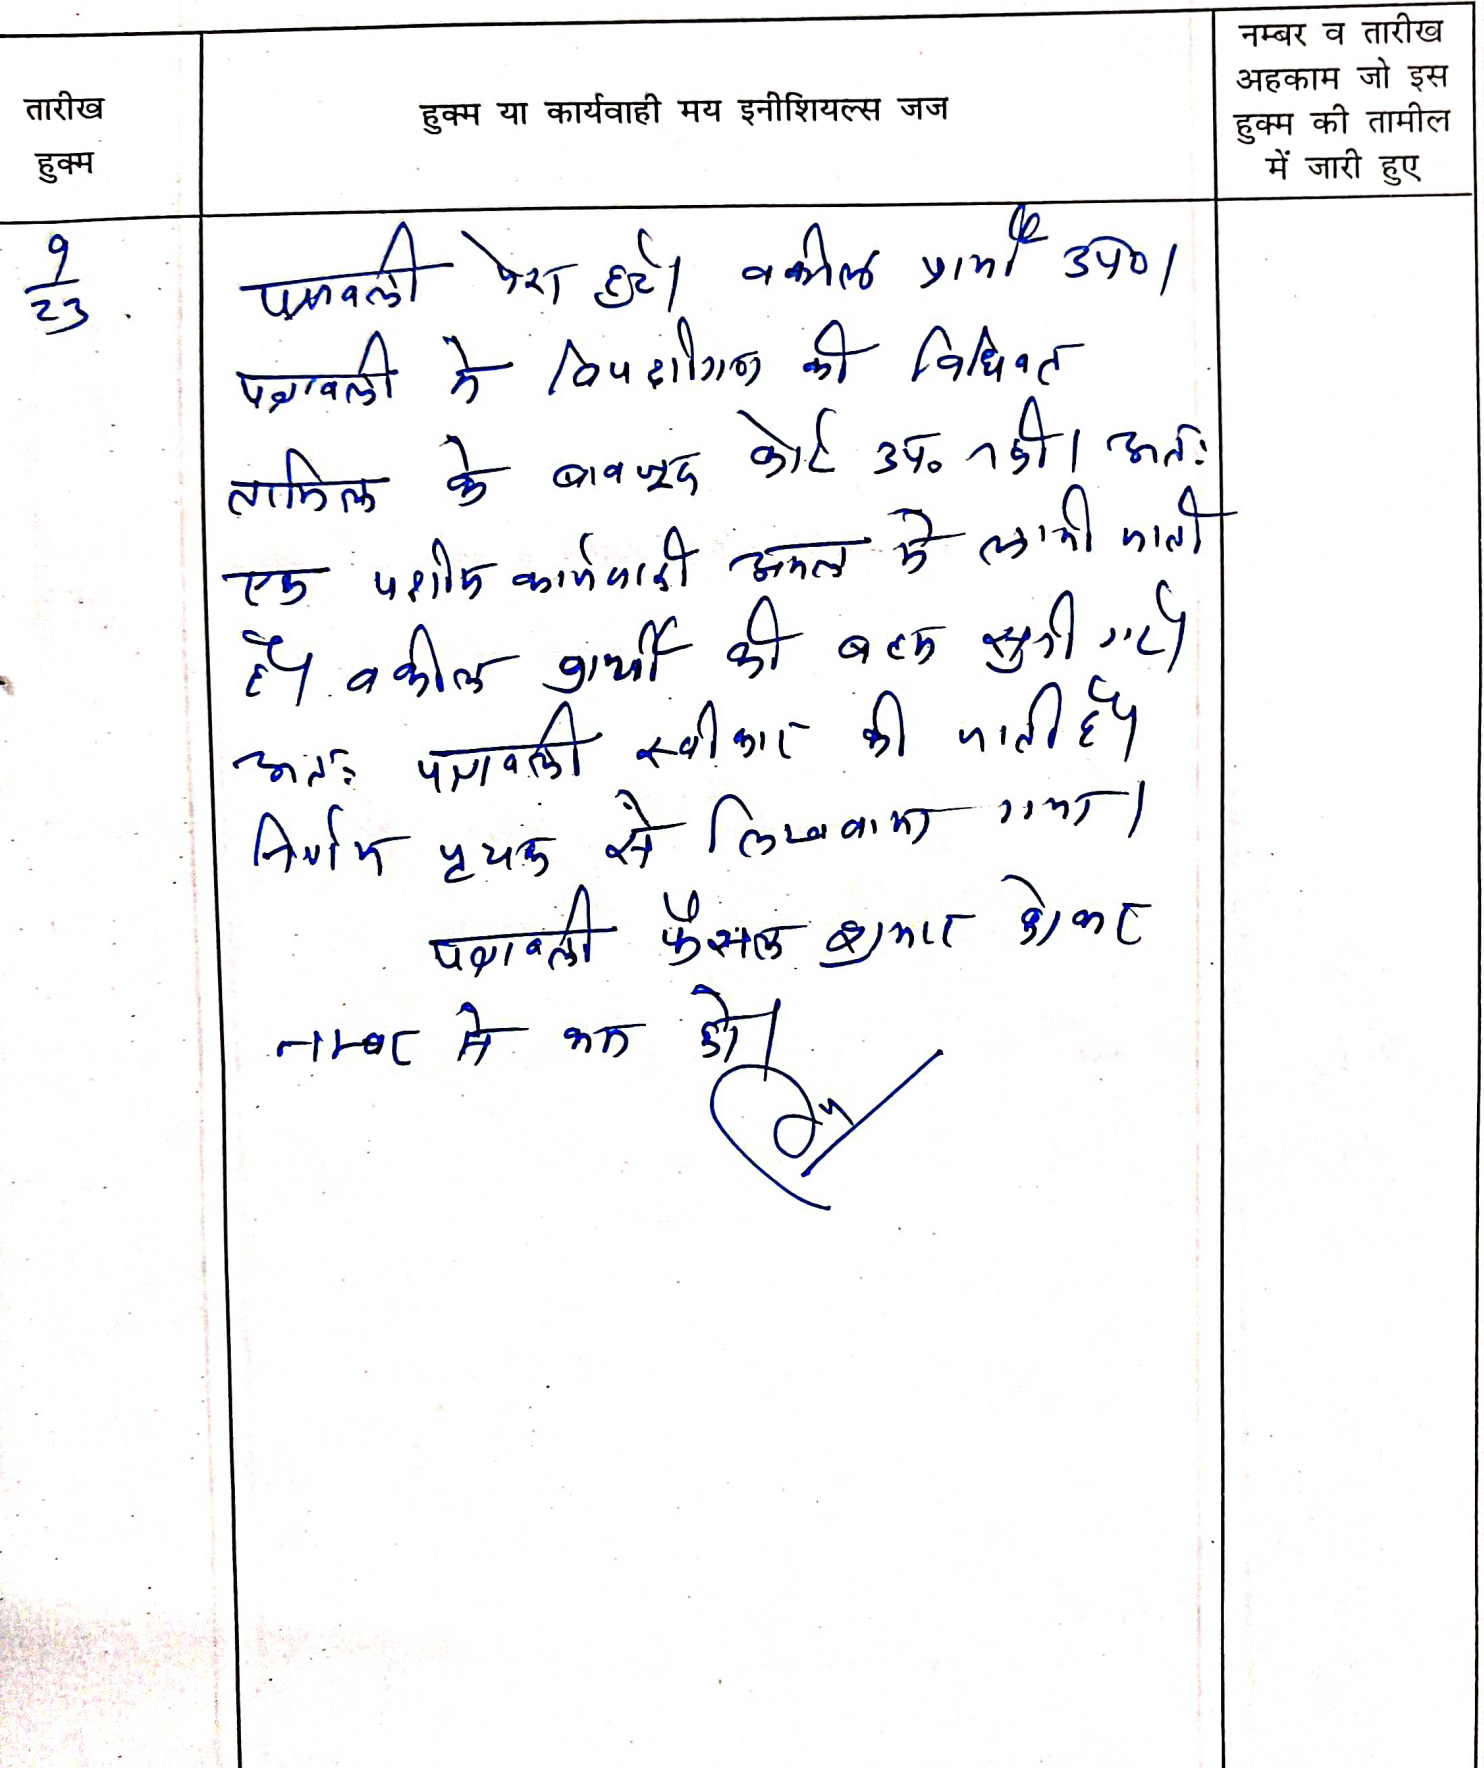 तारीख
हुक्म
हुक्म या कार्यवाही मय इनीशियल्स जज
नम्बर व तारीख
अहकाम जो इस
हुक्म की तामील
में जारी हुए
9
23
पत्रावली पेश हुई। वकील प्रार्थी उप०।
पत्रावली मे विपक्षीगण की विधिवत
तामिल के बावजूद कोई उप० नही। अतः
एक पक्षीय कार्यवाही अमल मे लायी जाती
है। वकील प्रार्थी की बहस सुनी गई।
अतः पत्रावली स्वीकार की जाती है।
निर्णय पृथक से लिखवाया गया।
पत्रावली फैसल शुमार होकर
नम्बर से कम हो।